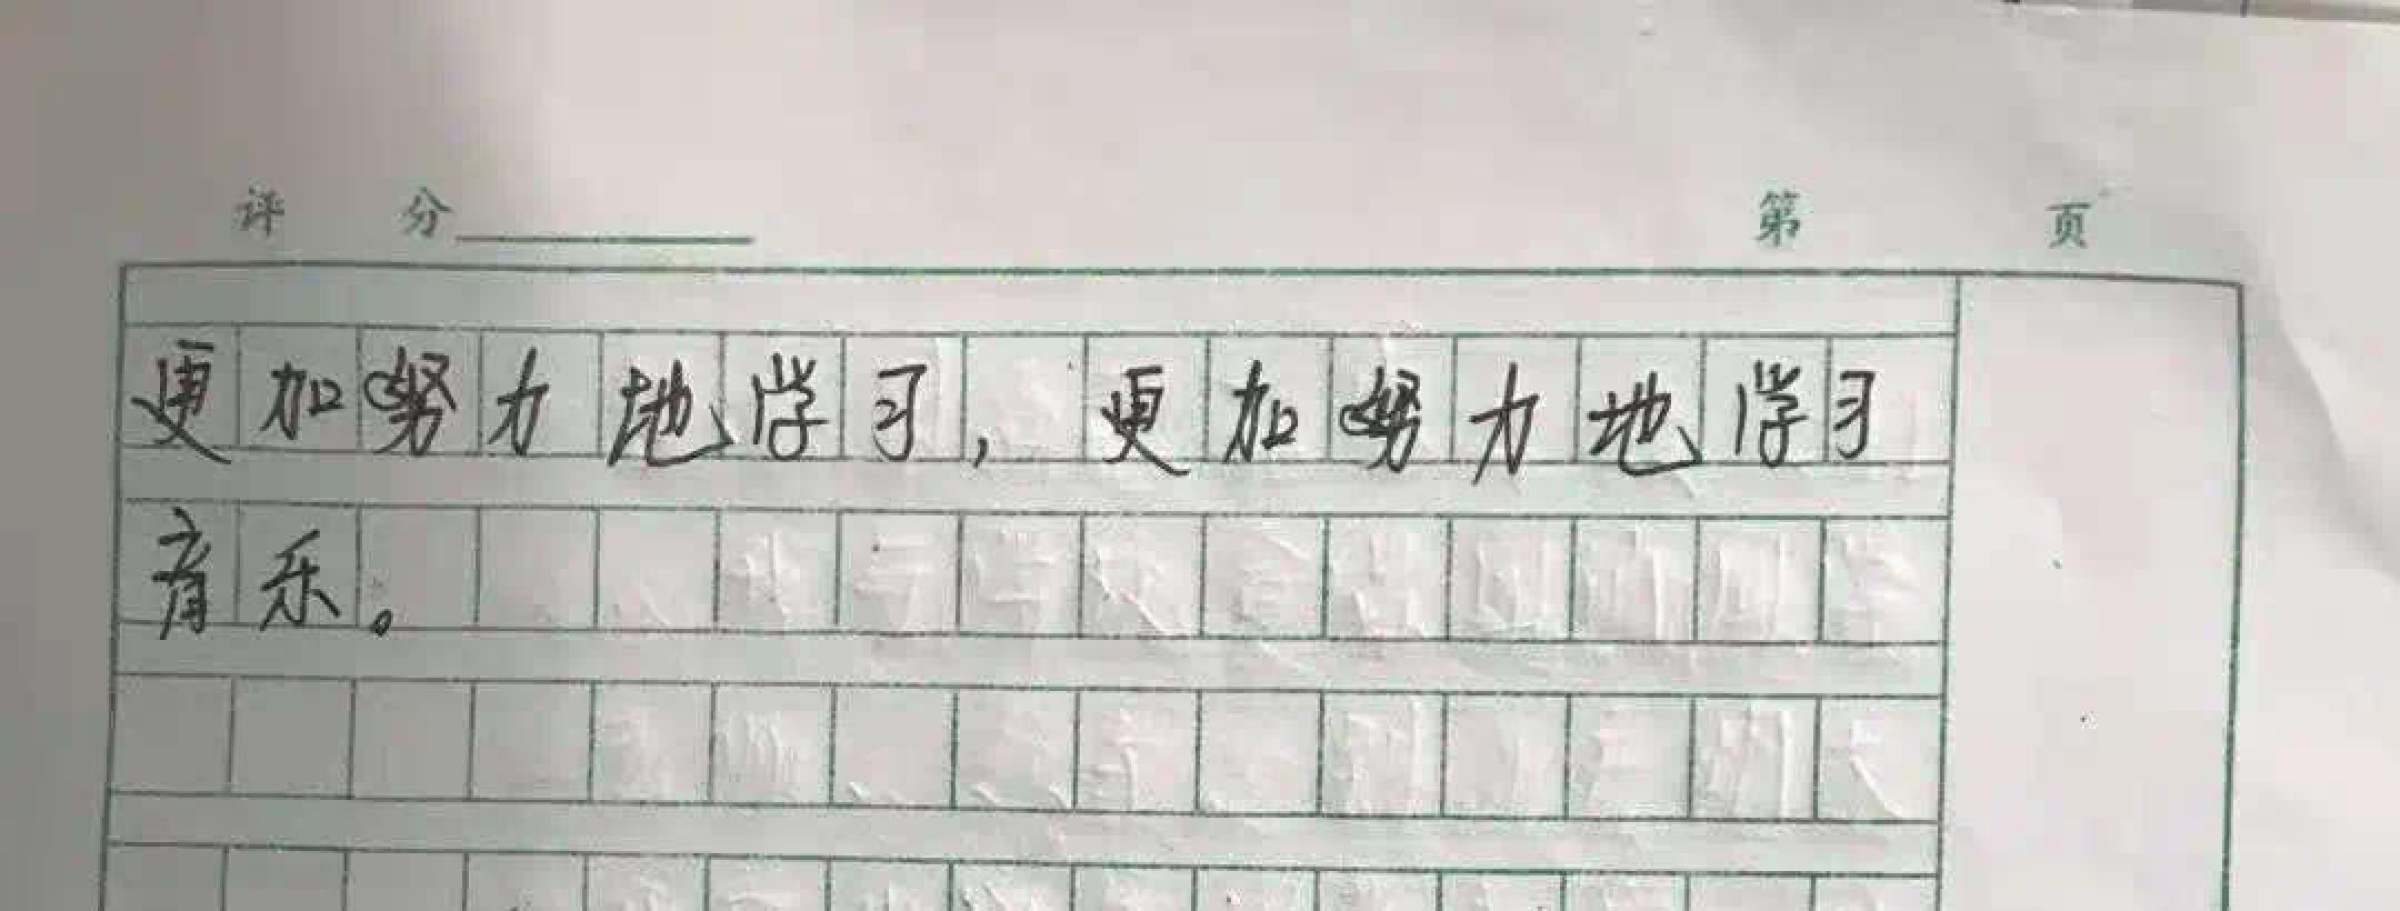 评 分 第 页
更加努力地学习，更加努力地学习
音乐。